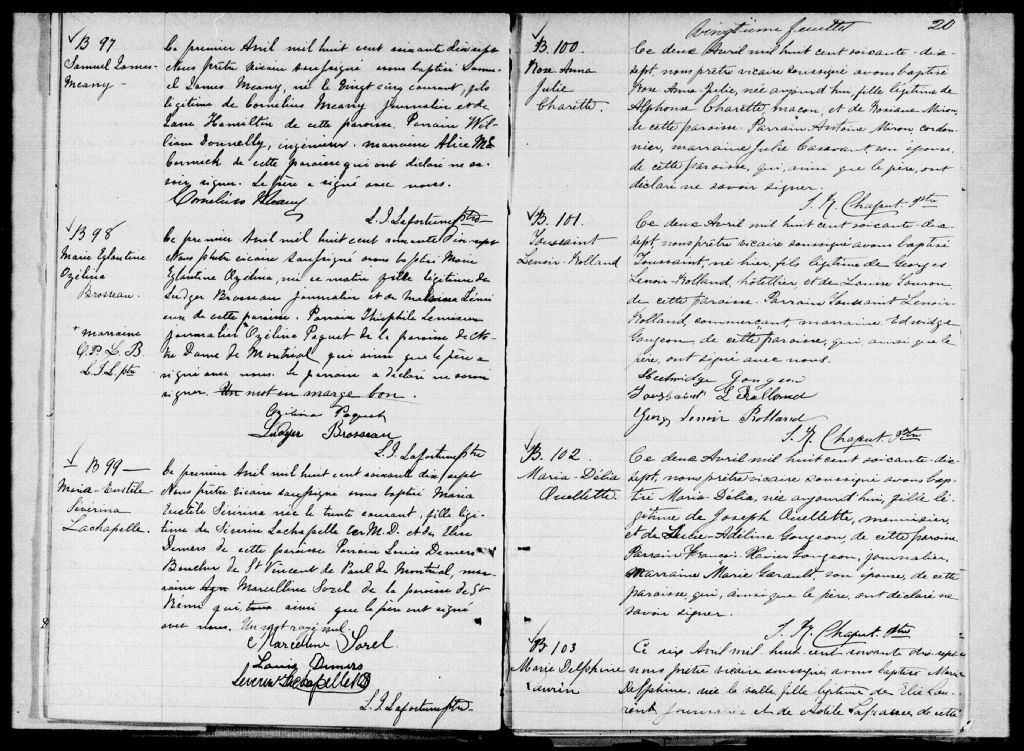 B 97
Samuel James
Meany
Ce premier Avril mil huit cent soixante dix sept
Nous prêtre vicaire soussigné avons baptisé Samu-
el James Meany, né le vingt cinq courant, fils
légitime de Cornelius Meany journalier et de
Jane Hamilton de cette paroisse. Parrain Wil-
liam Donnelly, ingénieur, marraine Alice Mc
Cormick de cette paroisse qui ont déclaré ne sa-
voir signer. Le père a signé avec nous.
Cornelius Meany
L. J. Lafortune ptre
B 98
Marie Eglantine
Ozilina
Brosseau.
+ marraine
O. P. L. B.
L. J. L. ptre
Ce premier Avril mil huit cent soixante dix sept
Nous prêtre vicaire soussigné avons baptisé Marie
Eglantine Ozilina, née ce matin fille légitime de
Ludger Brosseau journalier et de Lemi-
eux de cette paroisse. Parrain Théophile Lemieux
journalier + Ozilina Paquet de la paroisse de No-
tre Dame de Montréal, qui ainsi que le père a
signé avec nous. Le parrain a déclaré ne savoir
signer. Un mot en marge bon.
Ozilina Paquet
Ludger Brosseau
L. J. Lafortune ptre
B 99
Maria-Eustile
Séverina
Lachapelle.
Ce premier Avril mil huit cent soixante dix sept
Nous prêtre vicaire soussigné avons baptisé Maria
Eustile Séverina née le trente courant, fille légi-
time de Séverin Lachapelle M.D. et de Elise
Demers de cette paroisse Parrain Louis Demers
Boucher de St Vincent de Paul de Montréal, mar-
raine Marcelline Sorel de la paroisse de St
Rémi qui, ainsi que le père ont signé
avec nous. Un mot rayé nul.
Marcelline Sorel
Louis Demers
Séverin Lachapelle MD
L. J. Lafortune ptre
vingtième feuillet 20
B. 100.
Rose Anna
Julie
Charette.
Ce deux Avril mil huit cent soixante-dix-
sept, nous prêtre vicaire soussigné avons baptisé
Rose Anna Julie, née aujourd'hui, fille légitime de
Alphonse Charette, maçon, et de Rosiane Miron,
de cette paroisse. Parrain Antoine Miron cordon-
nier, marraine Julie Casavant son épouse,
de cette paroisse, qui, ainsi que le père, ont
déclaré ne savoir signer.
Chaput ptre
B. 101.
Toussaint
Lenoir-Rolland
Ce deux Avril mil huit cent soixante-dix-
sept, nous prêtre vicaire soussigné avons baptisé
Toussaint, né hier, fils légitime de Georges
Lenoir-Rolland, hôtellier et de Louise
de cette paroisse. Parrain Toussaint Lenoir-
Rolland, commerçant, marraine Edwidge
Gougeon de cette paroisse, qui, ainsi que le
père, ont signé avec nous.
Hedwidge Gougeon
Toussaint L Rolland
George Lenoir Rolland
Chaput ptre
B. 102
Maria-Délia
Ouellette
Ce deux Avril mil huit cent soixante-dix-
sept, nous prêtre vicaire soussigné avons bap-
tisé Maria-Délia, née aujourd'hui, fille lé-
gitime de Joseph Ouellette, menuisier,
et de Adéline Gougeon de cette paroisse,
Parrain François-Xavier Gougeon, journalier,
Marraine Marie Garault, son épouse, de cette
paroisse, qui, ainsi que le père, ont déclaré ne
savoir signer.
Chaput ptre
B 103
Marie Delphine
Laurin
Ce six Avril mil huit cent soixante dix-sept
nous prêtre vicaire soussigné avons baptisé Marie
Delphine, née la veille, fille légitime de Elie Lau-
journalier et de Lafrance de cette